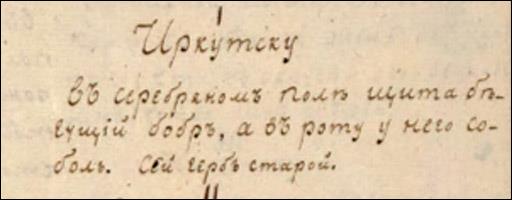 Иркутску
въ серебряномъ полѣ щита бѣ-
гущiй бобръ, а въ роту у него со-
боль. Сей гербъ старой.